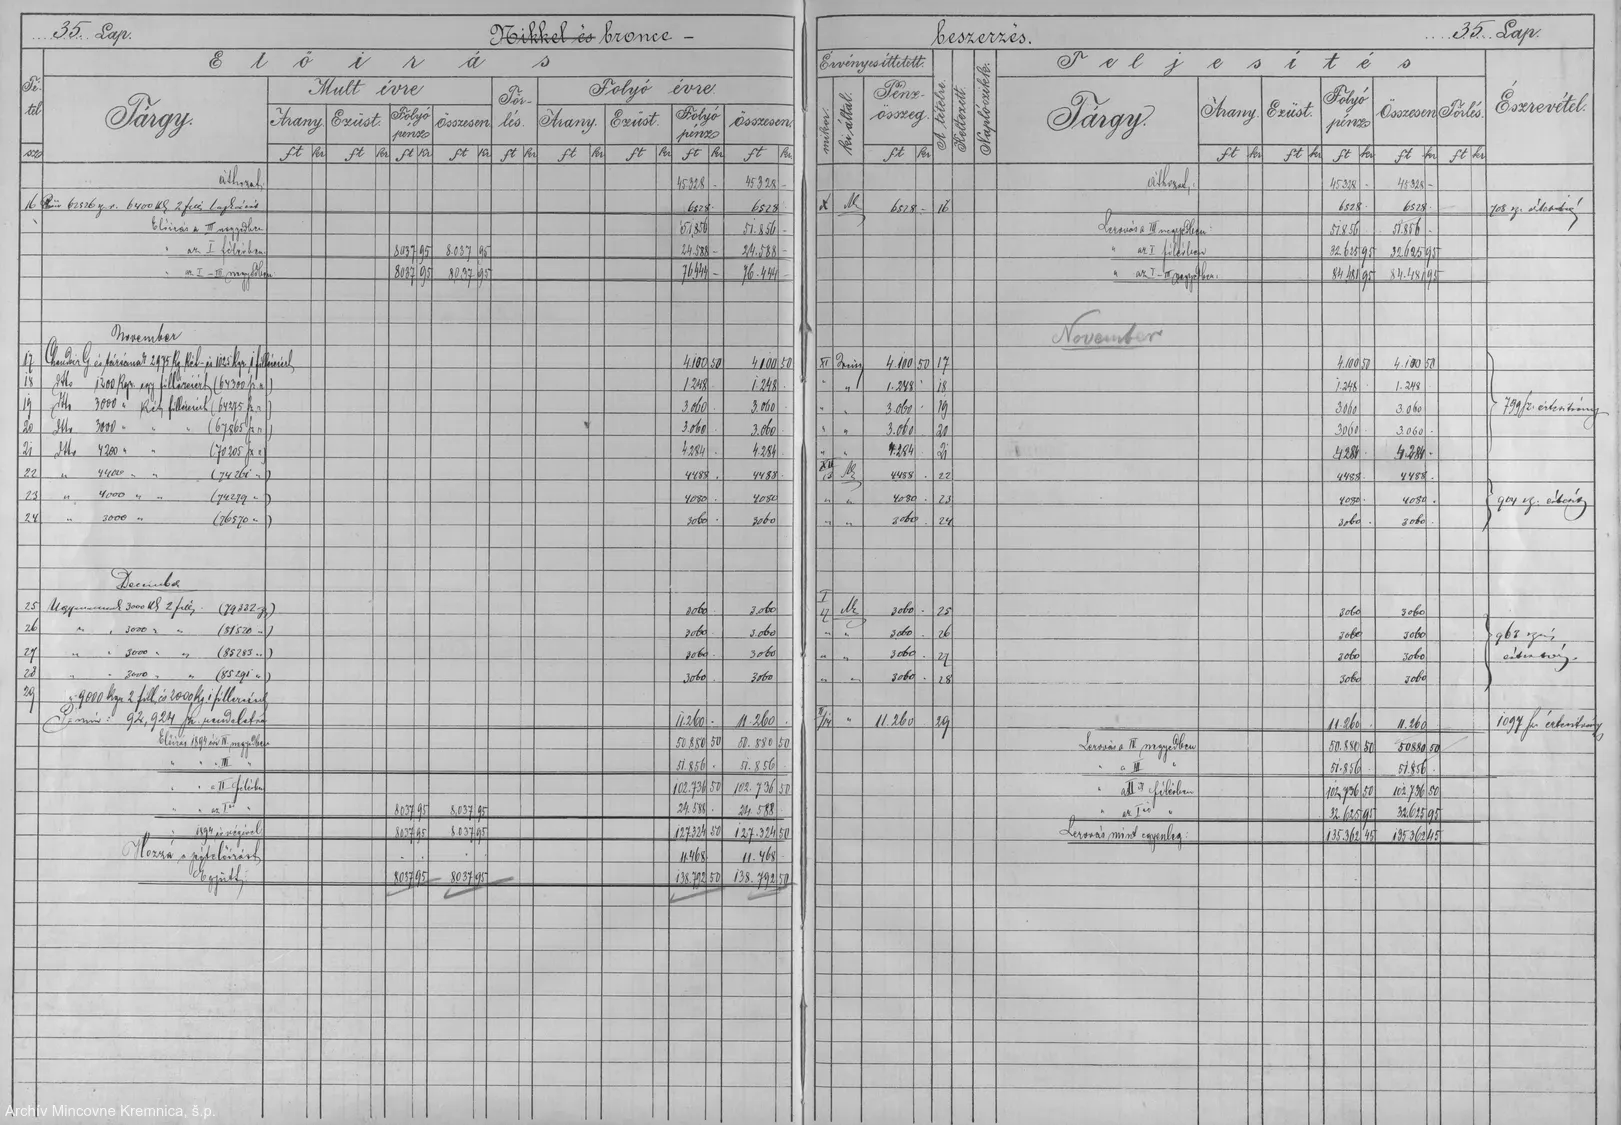 35. Lap.
Nikkel és bronce –
beszerzés.
35. Lap.
Előirás
Teljesités
Tétel szám
Tárgy.
Mult évre
Törlés.
Folyó évre.
Érvényesittetett
mikor.
ki által.
Pénzösszeg.
A tételre.
Keltezett
Naplóczikk.
Tárgy.
Arany.
Ezüst.
Folyó pénz
Összesen.
Törlés.
Észrevétel.
Arany. Ezüst. Folyó pénz Összesen. Arany. Ezüst. Folyó pénz Összesen.
ft kr ft kr ft kr ft kr ft kr ft kr ft kr ft kr ft kr ft kr ft kr ft kr ft kr ft kr ft kr
Áthozat 45328 – 45328 – Áthozat. 45328 – 45328 –
16 62526 6400 2 6528 6528 X 6528 – 16 6528 6528 708
Előirás a III negyedben 51.856 51.856 – Lerovás a III negyedben 51.856 51.856 –
" az I félévben 8037 95 8.037 95 24.588 – 24.588 – " az I félévben 32.625 95 32.625 95
" az I–III negyedben 8037 95 8037 95 76444 – 76.444 – " az I–III negyedben. 84.481 95 84.481 95
November
November
17 2975 Kg két és 1025 Kgr. 1 4.100 50 4.100 50 XI 4.100 50 17 4.100 50 4.100 50
18 dtto 1200 Kgr. egy (64300) 1.248 1.248 " " 1.248 18 1.248 1.248
19 dtto 3000 " két (64375) 3.060 3.060 " " 3.060 19 3.060 3.060 799 fz. értesitvény
20 dtto 3000 " " (67865) 3.060 3.060 " " 3.060 20 3060 3.060
21 dtto 4200 " " (70205) 4284 4284 " " 4.284 21 4284 4.284
22 " 4400 " " 4488 4488 XII 4488 22 4488 4488
23 " 4000 " " (74279 ") 4080 4080 " " 4080 23 4080 4080
24 " 3000 " (76570 ") 3060 3060 " " 3060 24 3060 3060
December
25 3000 2 (79332) 3060 3.060 I 3060 25 3060 3060
26 " " 3000 " " (81520 ") 3060 3.060 " " 3060 26 3060 3060
27 " " 3000 " " (85283 ") 3060 3060 " " 3060 27 3060 3060
28 " " 3000 " " (85291 ") 3060 3060 " " 3060 28 3060 3060
29 9000 Kgr. 2 fill. és 2000 Kg. 1
92,924 11.260 11.260 " 11.260 29 11.260 11.260 1097 értesitvény
Előirás 1894 év IV negyedben 50.880 50 50.880 50 Lerovás a IV negyedben 50.880 50 50880 50
" " " III " 51.856 51.856 " a III " 51.856 51.856
" " a II félévben 102.736 50 102.736 50 " a II félévben 102.736 50 102.736 50
" " az I " 8037 95 8.037 95 24.588 24.588 " az I " 32.625 95 32.625 95
" 1894 év végével 8037 95 8.037 95 127324 50 127.324 50 Lerovás mint egyenleg: 135.362 45 135.362 45
Hozzá a 11.468 11.468
Együtt: 8037 95 8037 95 138.792 50 138.792 50
Archív Mincovne Kremnica, š.p.